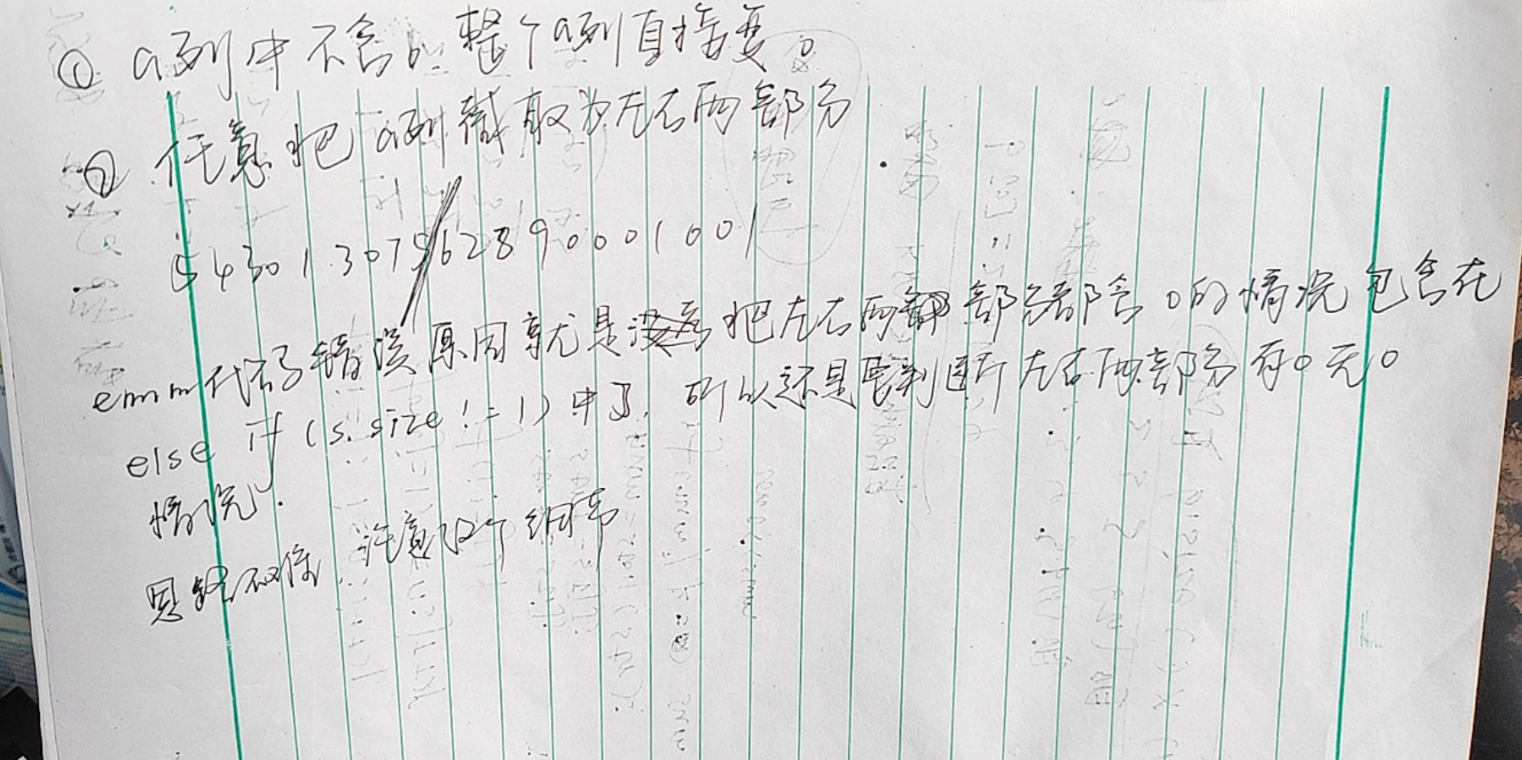 ① a列中不含0,整个a列直接变。
② 任意把a列截取为左右两部分
543013075/62890001001
emm代码错误原因就是没把左右两部分都含0的情况包含在
else if (s.size != 1) 中了, 所以还是要判断左右两部分有0无0
情况.
思路不像 注意这个细节